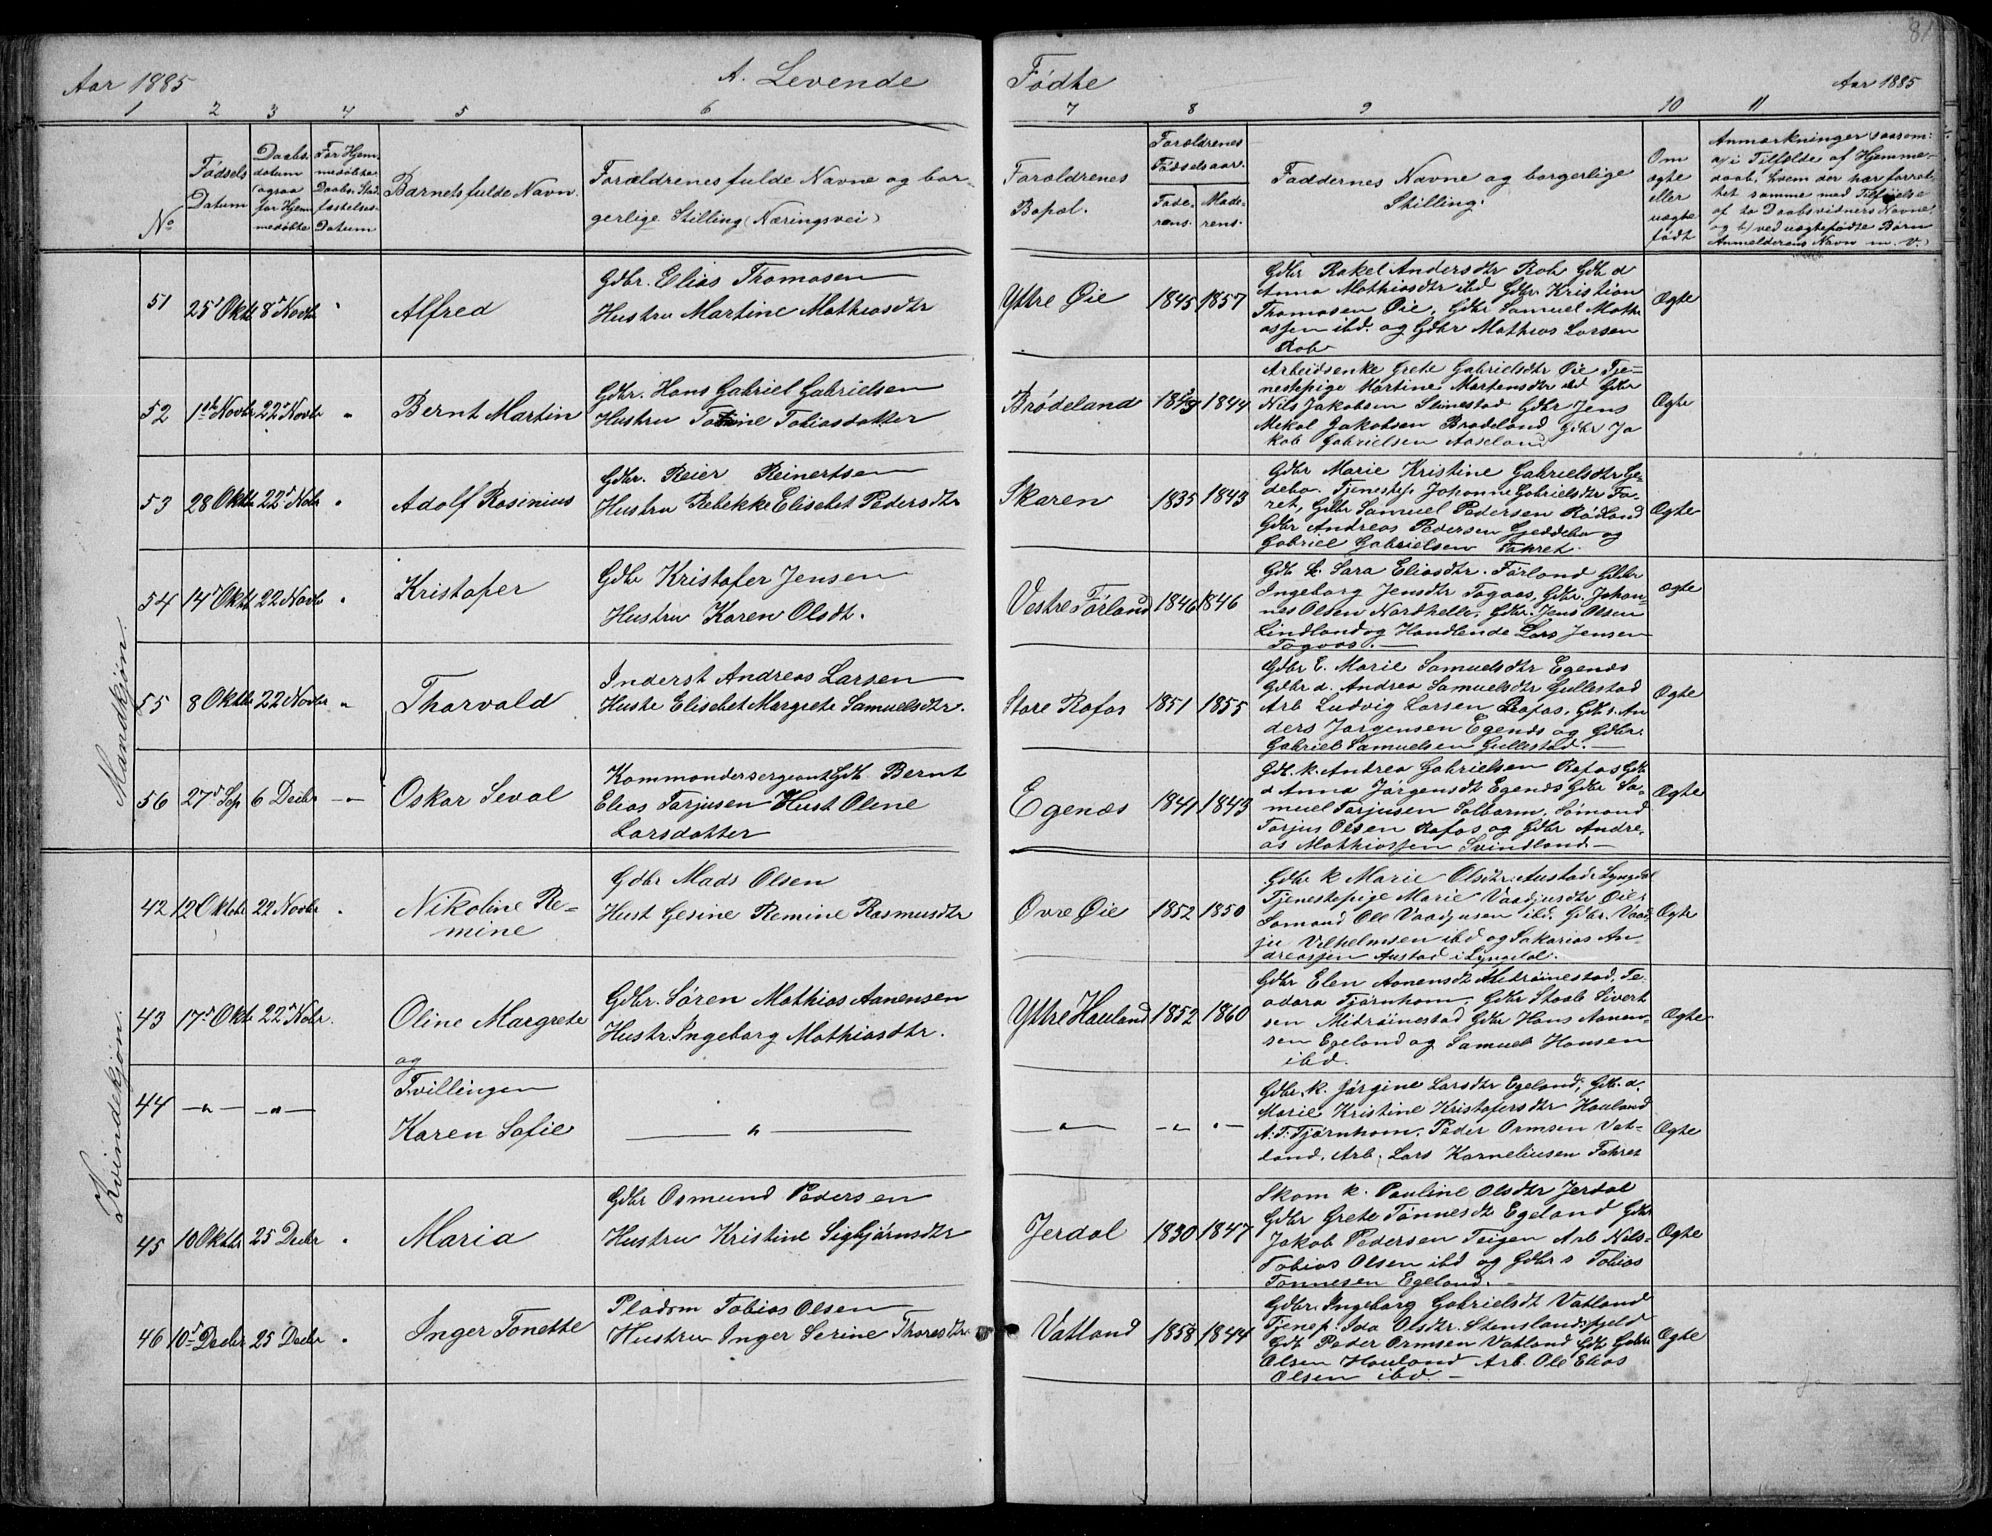 81
Aar 1885
A. Levende
Fødte
Aar 1885
1 2 3 4 5 6 7 8 9 10 11
No
Fødsels Datum
Daabs-
datum
(ogsaa
for hjem-
medøbte
For Hjem-
medøbte
Daabs Stad-
fæstelses-
Datum
Barnets fulde Navn.
Forældrenes fulde Navne og bor-
gerlige Stilling (Næringsvei)
Forældrenes
Bopæl.
Forældrenes
Fødselsaar.
Fade-
rens.
Mode-
rens.
Faddernes Navne og borgerlige
Stilling.
Om
ægte
eller
uægte
født
Anmærkninger saasom:
a) i Tilfælde af Hjemme-
daab, hvem der har forret-
tet samme med Tilføielse
af to Daabsvidners Navne,
og b) ved uægtefødte Børn
Anmelderens Navn m. V.
Mandkjøn.
51 25d Oktb 8d Novbr " Alfred
Gdbr. Elias Thomasen
Hustru Martine Mathiasdtr
Yttre Øie 1845 1857
Gdbr Rakel Andersdtr Rob Gdb d
Anna Mathiasdtr ibd Gdbr Kristian
Thomasen Øie, Gdbr Samuel Mathi
assen ibd. og Gdbr Mathias Larsen
Rob
Ægte
52 1ste Novbr 22d Novbr " Bernt Martin
Gdbr. Hans Gabriel Gabrielsen
Hustru Tobine Tobiasdatter
Brødeland 1843 1844
Arbeidsenke Grete Gabrielsdtr Øie Tje-
nestepige Martine Martensdtr ibd Gdbr
Nils Jakobsen Stinestad Gdbr Jens
Mikal Jakobsen Brødeland Gdbr Ja
kob Gabrielsen Aaseland
Ægte
53 28 Oktbr 22d Nobr " Adolf Rasinius
Gdbr. Reier Reinertsen
Hustru Rebekke Elisebet Pedersdtr
Skaren 1835 1843
Gdbr Marie Kristine Gabrielsdtr Ge-
debo. Tjenestep. Johanne Gabrielsdtr Fa-
ret, Gdbr Samuel Pedersen Rødland
Gdbr Andreas Pedersen Gjeddebo og
Gabriel Gabrielsen Fahret.
Ægte
54 14d Oktb 22 Novb " Kristofer
Gdbr Kristofer Jensen
Hustru Karen Olsdt.
Vestre Førland 1846 1846
Gdb k. Sara Eliasdtr. Førland Gdbr
Ingeborg Jensdtr Togaas, Gdbr. Johan-
nes Olsen Nordhelle, Gdbr. Jens Olsen
Lindland og Handlende Lars Jensen
Togaas.
ægte
55 8 Oktbr 22 Novbr " Thorvald
Inderst Andreas Larsen
Hustr Elisebet Margrete Samuelsdtr.
Store Rafos 1851 1855
Gdbr E. Marie Samuelsdtr Egenæs
Gdbr d. Andrea Samuelsdtr Gullestad
Arb Ludvig Larsen Rafos, Gdb s. An
ders Jørgensen Egenæs og Gdbr.
Gabriel Samuelsen Gullestad.
Ægte
56 27d Sep 6 Decbr " Oskar Seval
Kommandersergeant Gdb Bernt
Elias Tarjusen Hust Oline
Larsdatter
Egenæs 1841 1843
Gdb. k. Andrea Gabrielsen Rafos Gdb
d Anna Jørgensdt Egenæs Gdbr Sa-
muel Tarjusen Solbarm. Sømand
Tarjus Olsen Rafos og Gdbr Andre-
as Mathiassen Svindland
Ægte
Kvindekjøn.
42 12 Oktbr 22 Novbr " Nikoline Re-
mine
Gdbr Mads Olsen
Hust Gesine Remine Rasmusdtr
Øvre Øie 1852 1850
Gdbr k Marie Olsdtr. Austad i Lyngdal
Tjenestepige Marie Vaadjusdtr Øie,
Sømand Ole Vaadjusen ibd. Gdbr. Vaad
ju Vilhelmsen ibd og Sakarias An-
dreassen Austad i Lyngdal.
Ægte
43 17d Okt 22d Nobr. Oline Margrete
og
Gdbr. Søren Mathias Aanensen
Hustr. Ingeborg Mathiasdtr.
Yttre Hauland 1852 1860
Gdbr Elen Aanensdt Midtøinestad, Te-
odora Tjørnhom. Gdbr Staale Sivert
sen Midtøinestad Gdbr Hans Aanen-
sen Egeland og Samuel Hansen
ibd.
Ægte
44 —"— —"— Tvillingen
Karen Sofie
—"—
—"— —"— "—
Gdbr. k. Jørgine Larsdtr Egeland, Gdb. d.
Marie Kristine Kristofersdtr Hauland
A. T. Tjørnhom, Peder Ormsen Vat-
land, Arb. Lars Korneliusen Fahret
Ægte
45 10 Oktbr 25 Decbr " Maria
Gdbr Osmund Pedersen
Hustru Kristine Sigbjørnsdtr
Jerdal 1830 1847
Skom k. Pauline Olsdtr Jerdal
Gdbr Grete Tønnesdt Egeland Gdbr
Jakob Pedersen Teigen Arb Nils-
Tobias Olsen ibd og Gdbr s Tobias
Tønnesen Egeland.
Ægte
46 10d Decbr 25 Decbr " Inger Tonette
Pladsm Tobias Olsen
Hustru Inger Serine Thoresdtr
Vatland 1858 1844
Gdbr. Ingeborg Gabrielsdt Vatland
Tjenep. Ida Olsdtr. Stenslandsfjeld
Gdb Peder Ormsen Vatland Gdb Gabri
Olsen Hauland Arb. Ole Elias
Olsen ibd.
Ægte